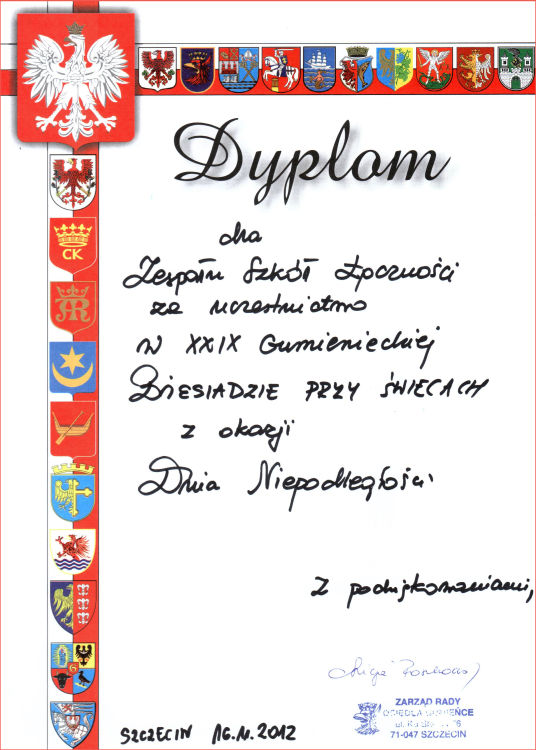 CK
Dyplom
dla
Zespołu Szkół Łączności
za uczestnictwo
w XXIX Gumienieckiej
BIESIADZIE PRZY ŚWIECACH
z okazji
Dnia Niepodległości
Z podziękowaniami,
ZARZĄD RADY
OSIEDLA GUMIEŃCE
ul.
71-047 SZCZECIN
SZCZECIN 16.11.2012